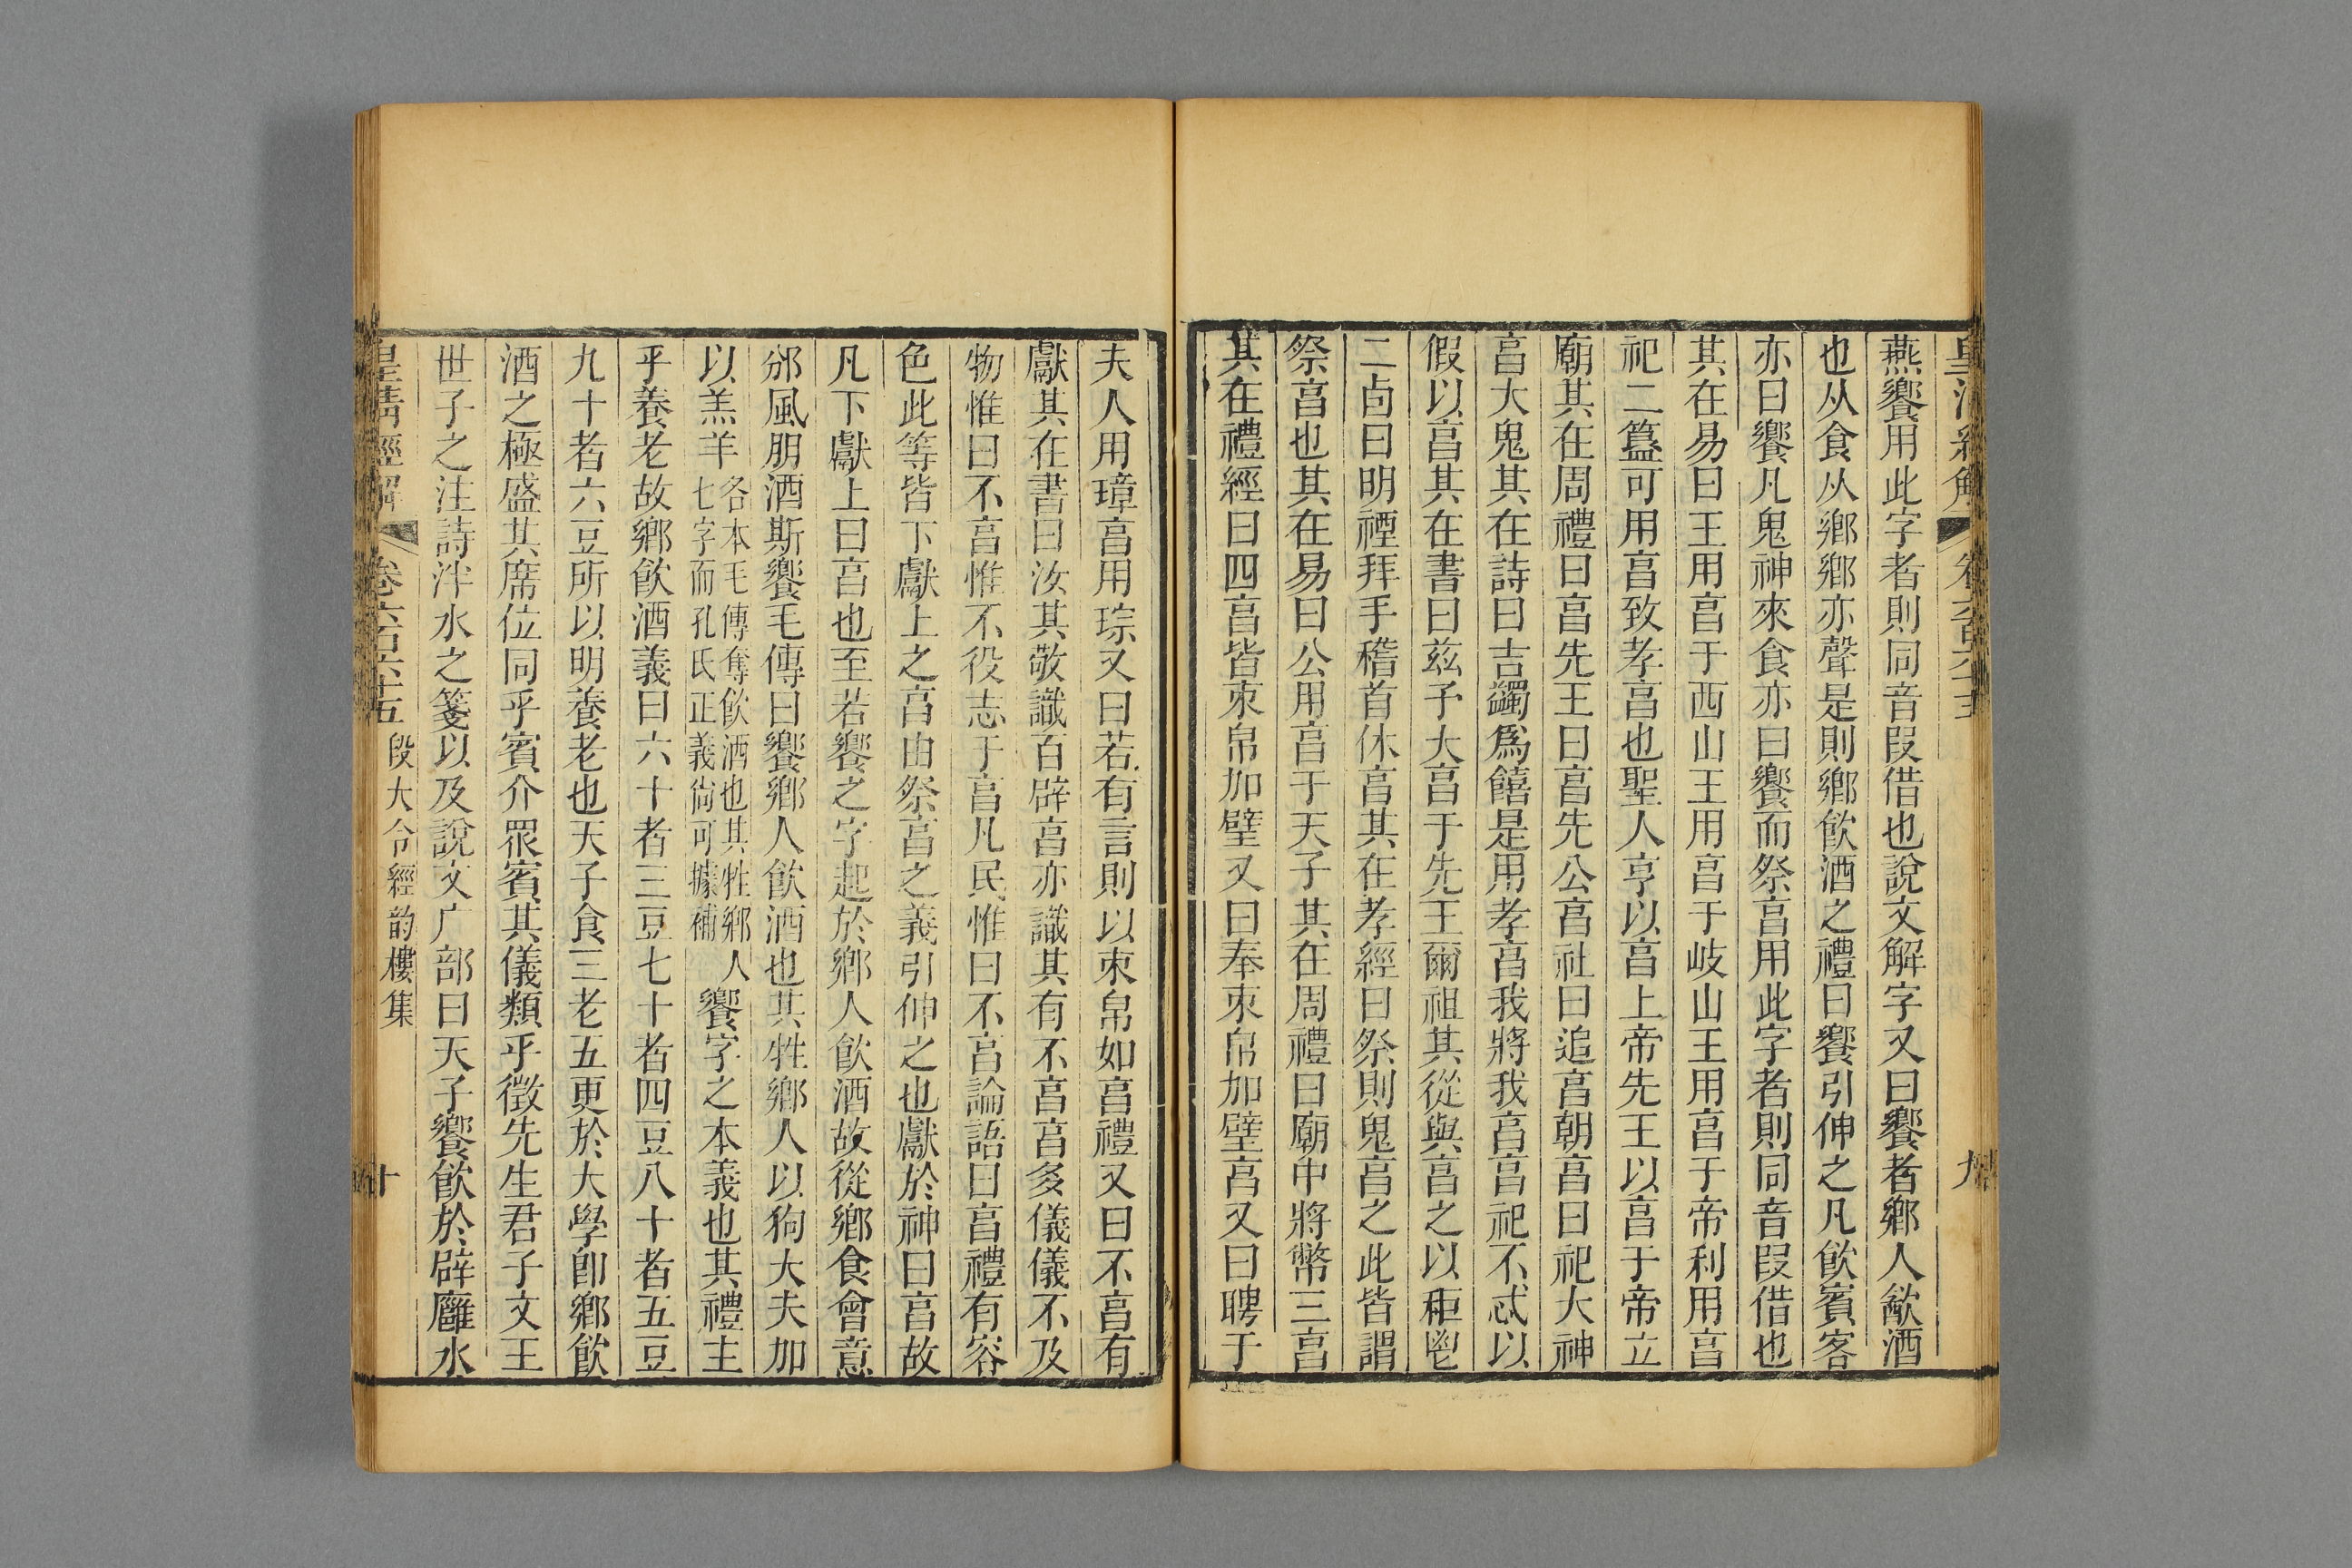 燕饗用此字者則同音叚借也說文解字又曰饗者鄉人飲酒
也从食从鄉鄉亦聲是則鄉飲酒之禮曰饗引伸之凡飲賓客
亦曰饗凡鬼神來食亦曰饗而祭亯用此字者則同音叚借也
其在易曰王用亯于西山王用亯于岐山王用亯于帝利用亯
祀二簋可用亯致孝亯也聖人亨以亯上帝先王以亯于帝立
廟其在周禮曰亯先王曰亯先公亯社曰追亯朝亯曰祀大神
亯大鬼其在詩曰吉蠲爲饎是用孝亯我將我亯亯祀不忒以
假以亯其在書曰玆予大亯于先王爾祖其從與亯之以秬鬯
二卣曰明禋拜手稽首休亯其在孝經曰祭則鬼亯之此皆謂
祭亯也其在易曰公用亯于天子其在周禮曰廟中將幣三亯
其在禮經曰四亯皆束帛加璧又曰奉束帛加璧亯又曰聘于
夫人用璋亯用琮又曰若有言則以束帛如亯禮又曰不亯有
獻其在書曰汝其敬識百辟亯亦識其有不亯亯多儀儀不及
物惟曰不亯惟不役志于亯凡民惟曰不亯論語曰亯禮有容
色此等皆下獻上之亯由祭亯之義引伸之也獻於神曰亯故
凡下獻上曰亯也至若饗之字起於鄉人飲酒故從鄉食會意
邠風朋酒斯饗毛傳曰饗鄉人飲酒也其牲鄉人以狗大夫加
以羔羊各本毛傳奪飲酒也其牲鄉人七字而孔氏正義尙可據補饗字之本義也其禮主
乎養老故鄉飲酒義曰六十者三豆七十者四豆八十者五豆
九十者六豆所以明養老也天子食三老五更於大學卽鄉飲
酒之極盛其席位同乎賓介眾賓其儀類乎徵先生君子文王
世子之注詩泮水之箋以及說文广部曰天子饗飲於辟廱水
皇清經解 卷六百六十五 段大令經韵樓集 十